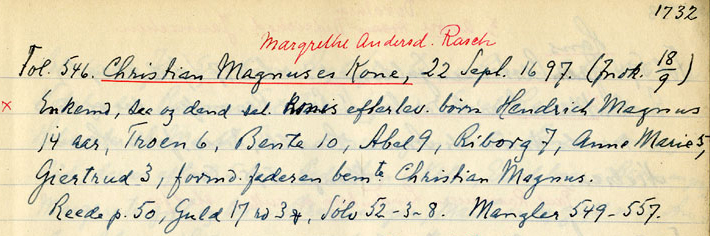 1732
Margrethe Andersd. Rasch
Fol. 546. Christian Magnuses Kone, 22 Sept. 1697. (Prok. 18/9)
x Enkemd, saa og dend sal. Konis efterlev. børn Hendrich Magnus
14 aar, Troen 6, Bente 10, Abel 9, Riborg 7, Anne Marie 5,
Giertrud 3, formd. faderen bemte Christian Magnus.
Reede p. 50, Guld 17 rd 3 ꝗ, Sølv 52-3-8. Mangler 549-557.